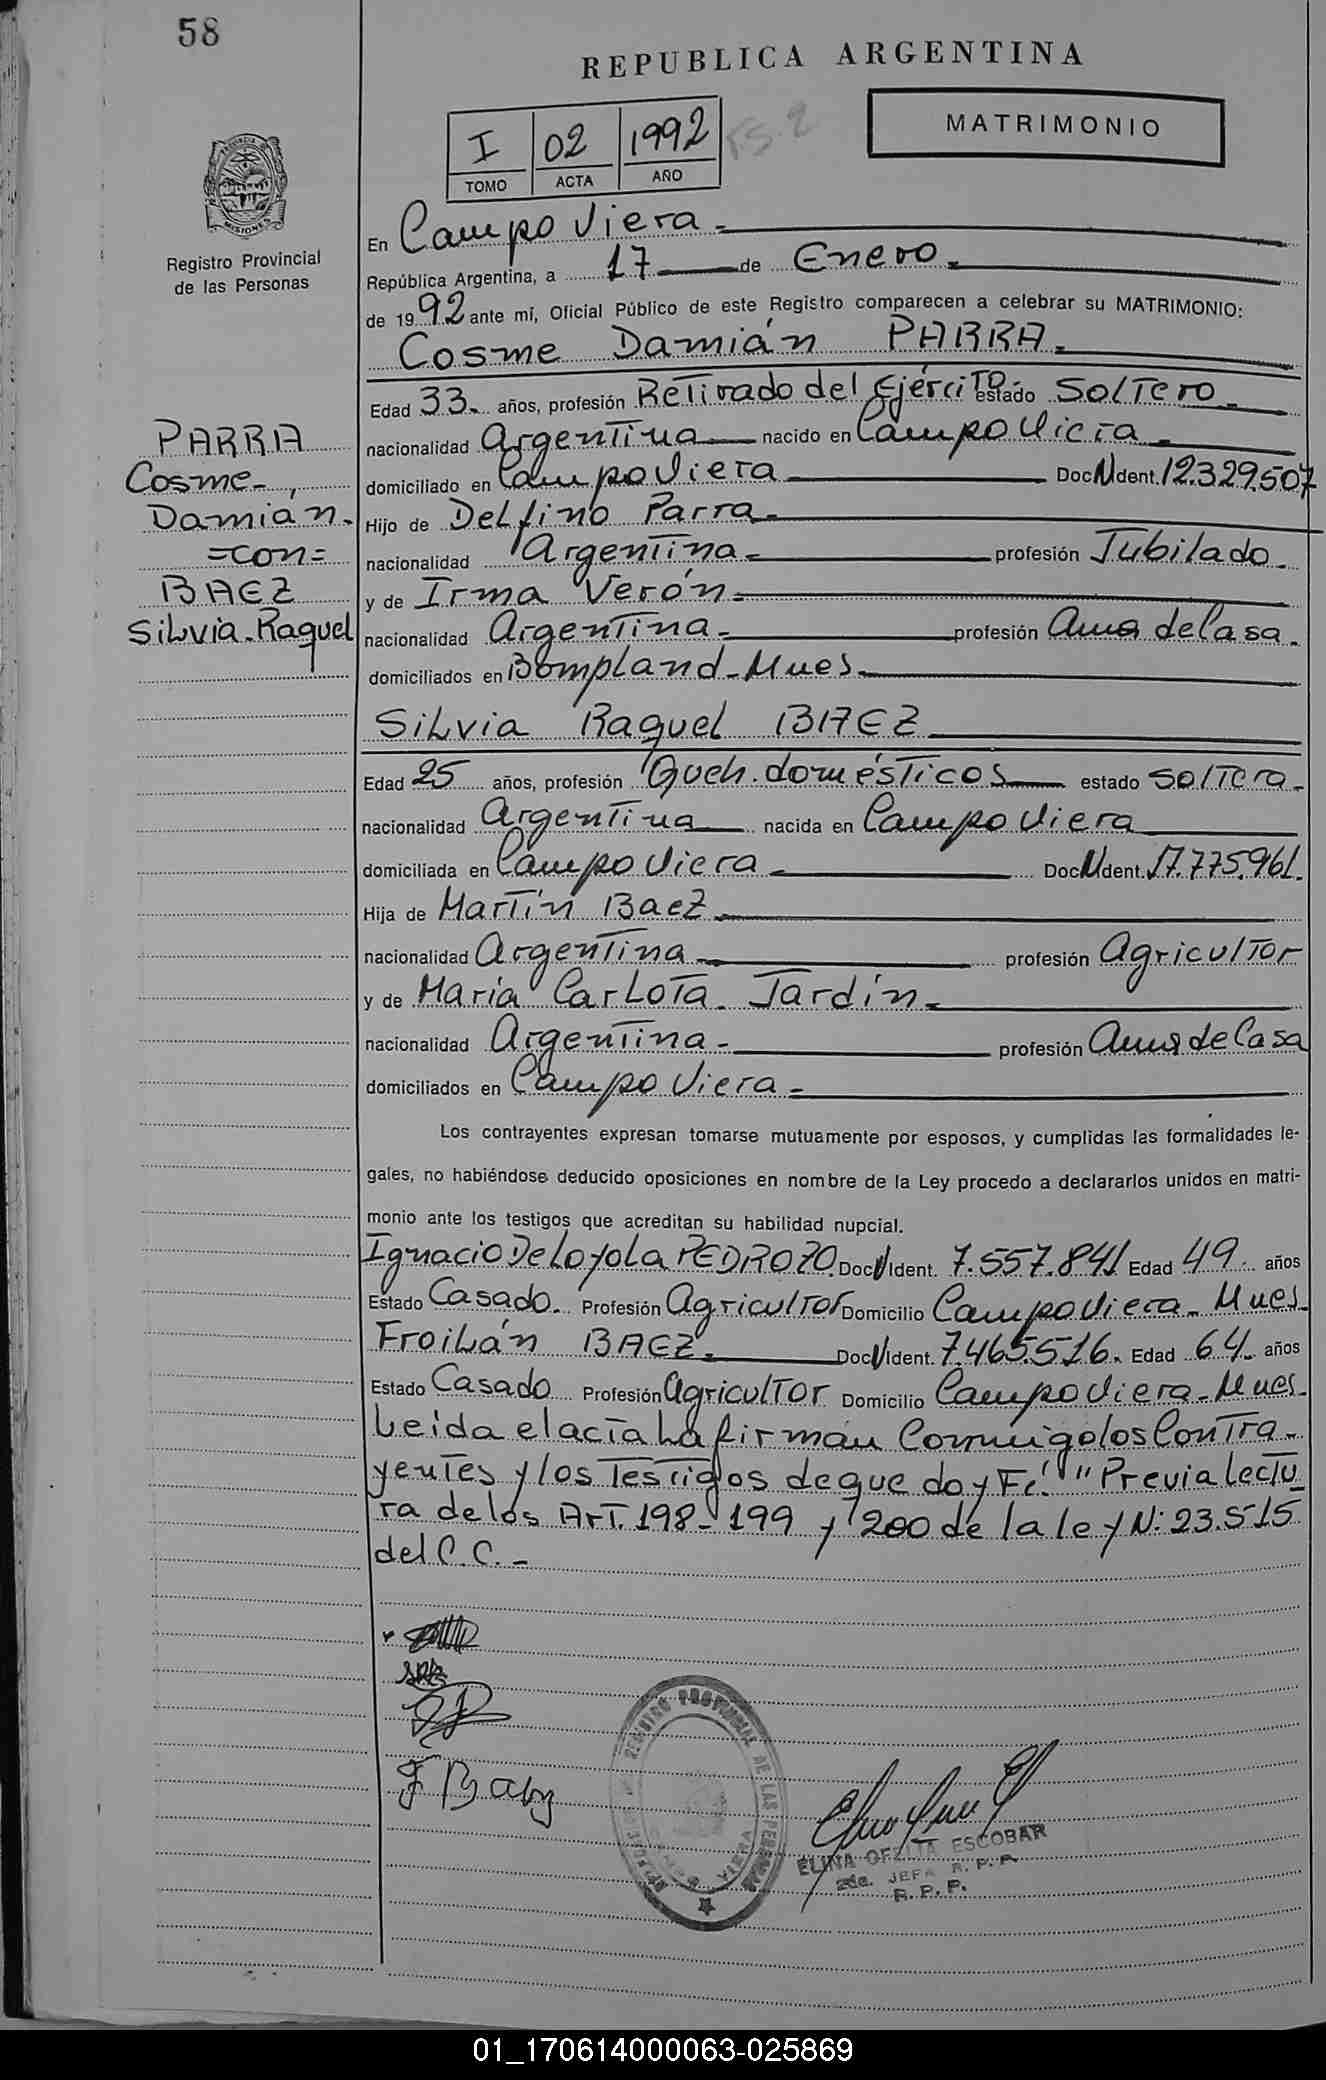 58
REPUBLICA ARGENTINA
MATRIMONIO
I 02 1992
TOMO ACTA AÑO
FS. 2
PROVINCIA DE
MISIONES
Registro Provincial
de las Personas
En Campo Viera.
República Argentina, a 17 de Enero.
de 1992 ante mí, Oficial Público de este Registro comparecen a celebrar su MATRIMONIO:
Cosme Damián PARRA.
Edad 33. años, profesión Retirado del Ejército estado Soltero.
nacionalidad Argentina nacido en Campo Viera.
domiciliado en Campo Viera Doc N Ident. 12.329.507
Hijo de Delfino Parra.
nacionalidad Argentina. profesión Jubilado.
y de Irma Verón.
nacionalidad Argentina. profesión Ama de Casa.
domiciliados en Bompland - Mnes.
PARRA
Cosme
Damián.
=con=
BAEZ
Silvia Raquel
Silvia Raquel BAEZ
Edad 25 años, profesión Queh. domésticos estado soltera.
nacionalidad Argentina nacida en Campo Viera
domiciliada en Campo Viera Doc N Ident. 17.775.961.
Hija de Martín Baez.
nacionalidad Argentina. profesión Agricultor
y de María Carlota Jardín.
nacionalidad Argentina. profesión Ama de Casa
domiciliados en Campo Viera.
Los contrayentes expresan tomarse mutuamente por esposos, y cumplidas las formalidades le-
gales, no habiéndose deducido oposiciones en nombre de la Ley procedo a declararlos unidos en matri-
monio ante los testigos que acreditan su habilidad nupcial.
Ignacio De Loyola PEDROZO. Doc N Ident. 7.557.841 Edad 49. años
Estado Casado. Profesión Agricultor Domicilio Campo Viera - Mnes.
Froilán BAEZ. Doc N Ident. 7.465.516. Edad 64. años
Estado Casado Profesión Agricultor Domicilio Campo Viera - Mnes.
Leida el acta la firmán Conmigo los Contra-
yentes y los Testigos de que doy Fé! "Previa lectu
ra de los Art. 198 - 199 y 200 de la ley N: 23.515
del C.C. -
F Baez
REGISTRO PROVINCIAL DE LAS PERSONAS
VIERA
ELINA OFELIA ESCOBAR
2da. JEFA R. P. P.
R. P. P.
01_170614000063-025869